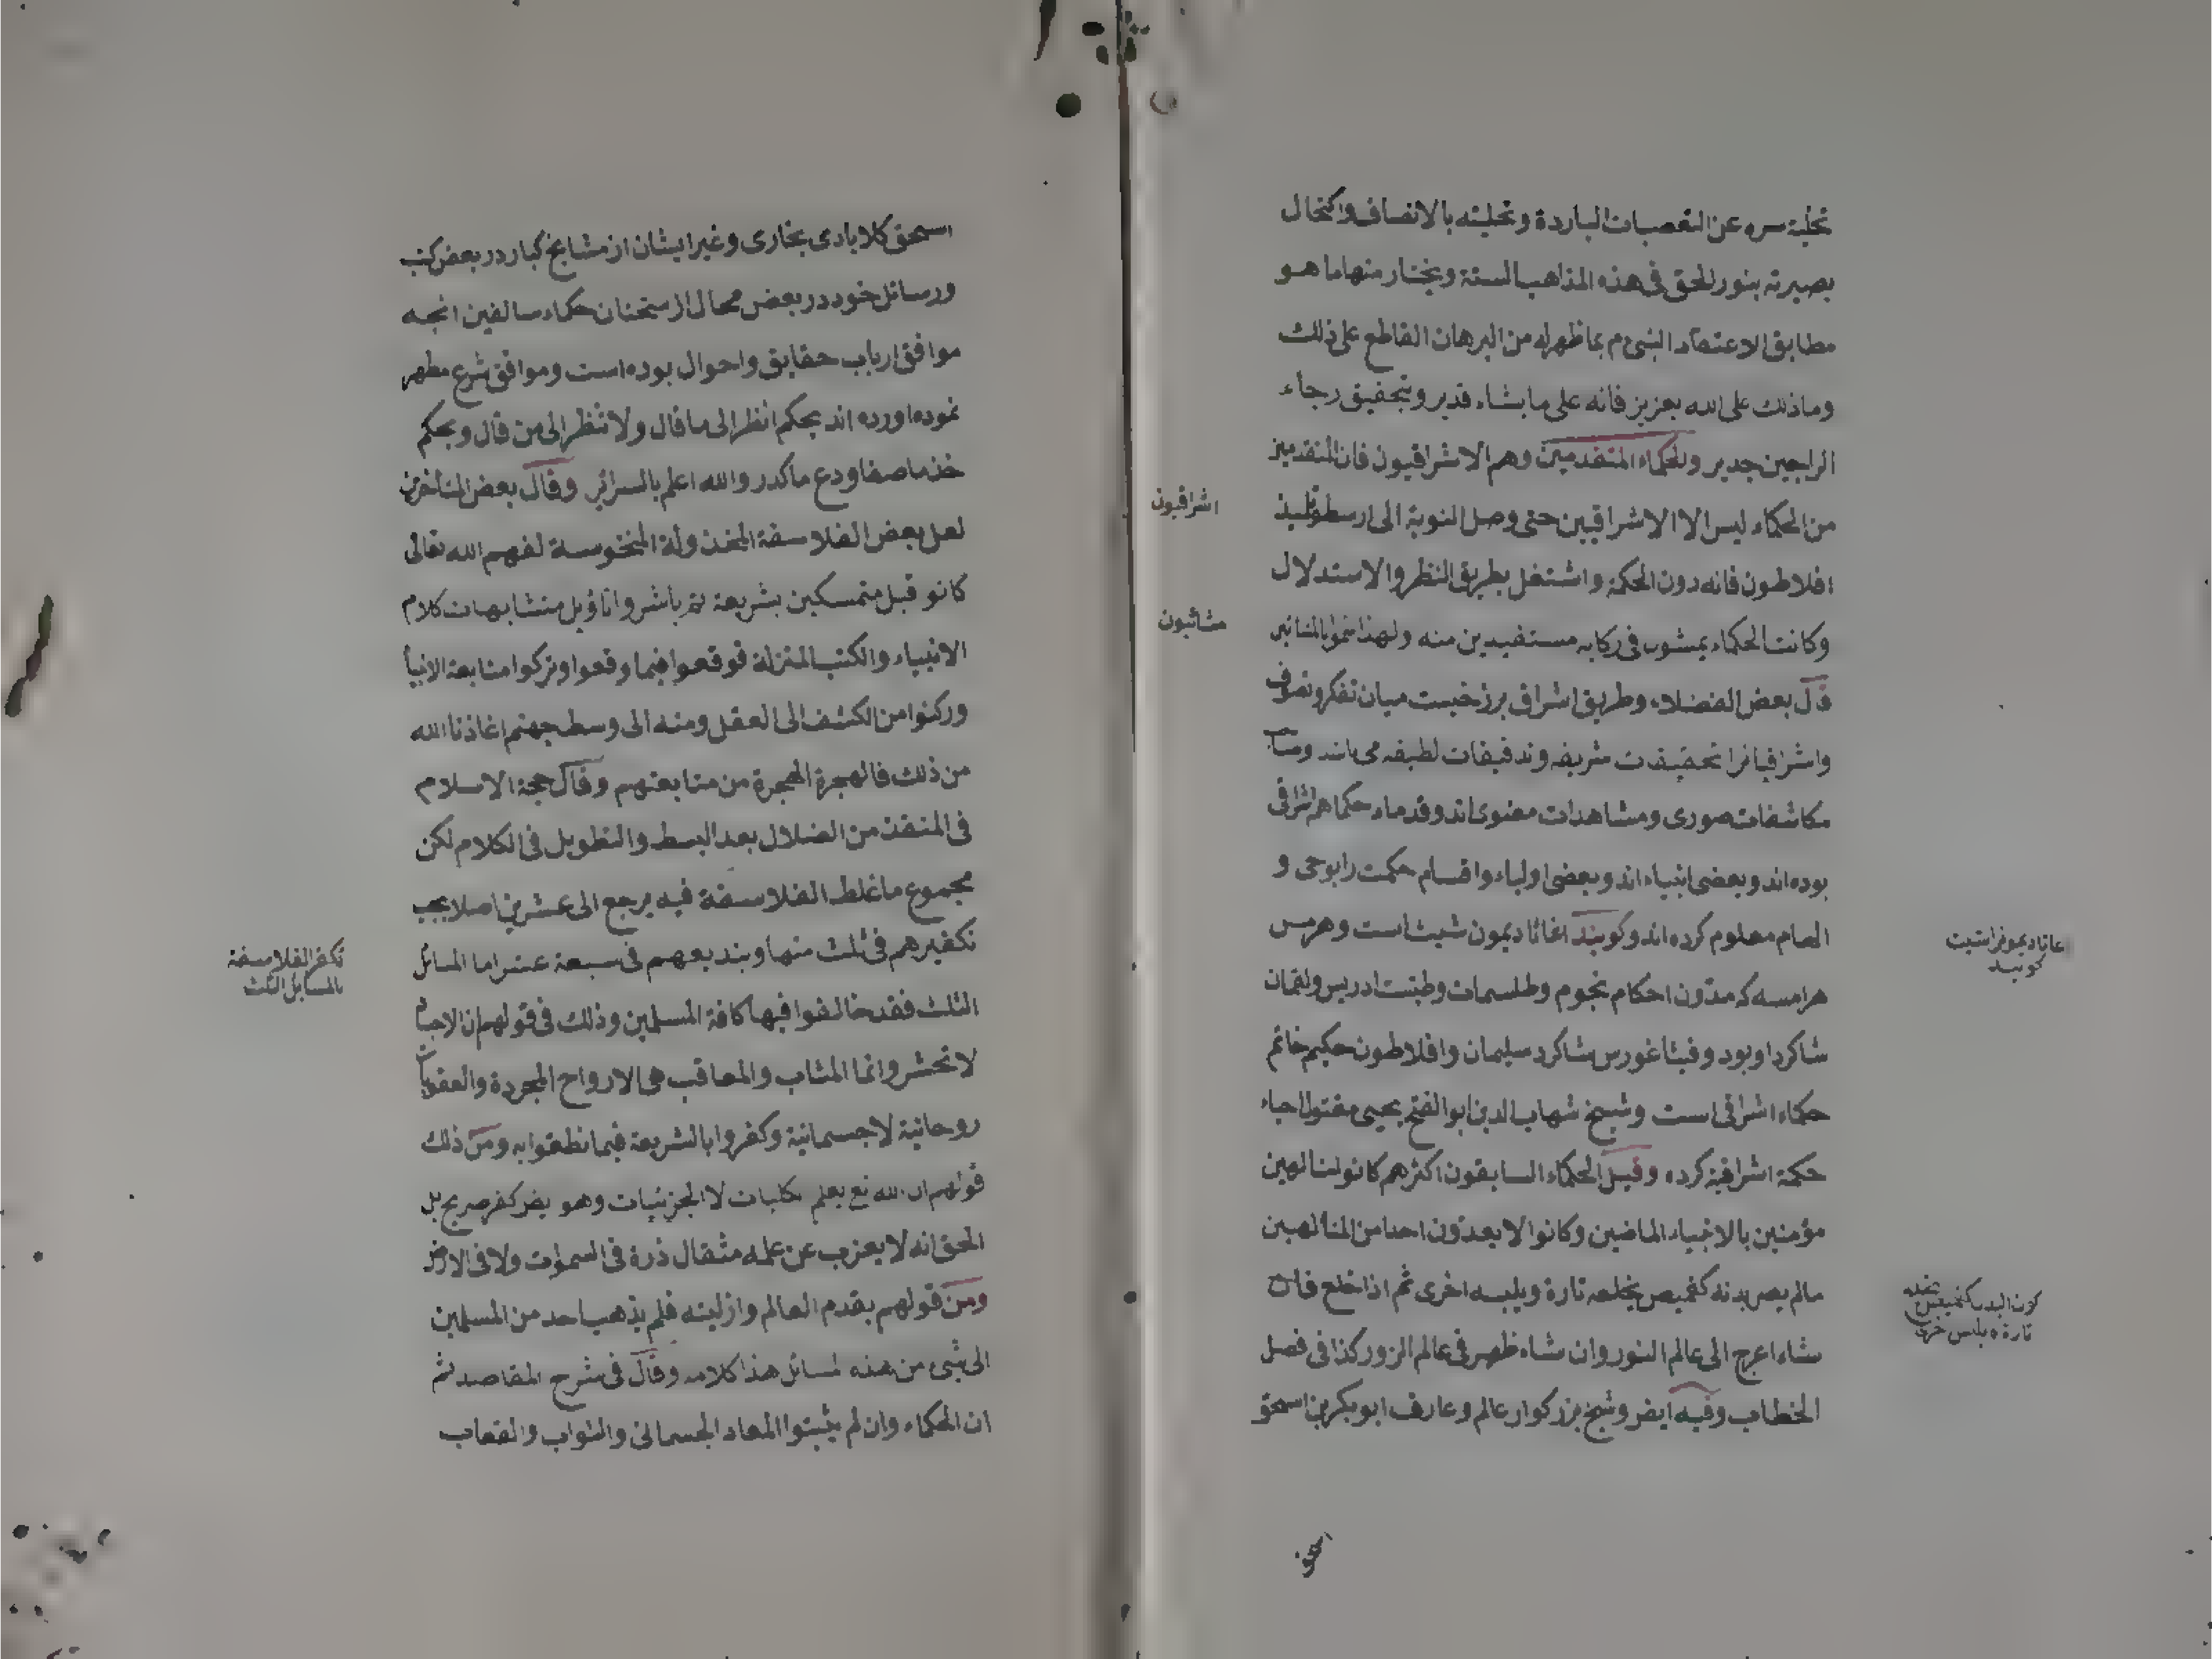 تخلية سره عن التعصبات الباردة وتحليته بالانصاف واكتحال
بصيرته بنور الحق فى هذه المذاهب الستة ويختار منها ما هو
مطابق الاعتقاد النبى م بما ظهر له من البرهان القاطع على ذلك
وما ذلك على الله بعزيز فانه على ما يشاء قدير وبتحقيق رجاء
الراجين جدير والحكماء المتقدمين وهم الاشراقيون فان المتقدمين
من الحكماء ليس الا الاشراقيين حتى وصل النوبة الى ارسطو تلميذ
افلاطون فانه دون الحكمة واشتغل بطريق النظر والاستدلال
وكانت الحكماء يمشون فى ركابه مستفيدين منه ولهذا سموا بالمشائين
قال بعض الفضلاء وطريق اشراق برزخيست ميان تفكر وتصوف
واشراقيانرا تحقيقات شريفه وتدقيقات لطيفه مى باشد
مكاشفات صورى ومشاهدات معنوى اند وقدماء حكما هم اشراقى
بوده اند وبعضى انبياء اند وبعضى اولياء واقسام حكمت را بوحى و
الهام معلوم كرده اند وكويند اغاثا ديمون شيث است وهرمس
هرامسه كه مدون احكام نجوم وطلسمات وطبست ادريس ولقمان
شاكرد او بود وفيثاغورس شاكرد سليمان وافلاطون حكيم خاتم
حكماء اشراقى است وشيخ شهاب الدين ابو الفتح يحيى مقتول احياء
حكمة اشراقية كرده وقيل الحكماء السابقون اكثرهم كانوا متالهين
مؤمنين بالانبياء الماضين وكانوا لا يعدون احدا من المتالهين
مالم يصر بدنه كقميص يخلعه تارة ويلبسه اخرى ثم اذا خلع فان
شاء اعرج الى عالم النور وان شاء ظهر فى عالم الزور كذا فى فصل
الخطاب وفيه ايضر وشيخ بزركوار عالم وعارف ابو بكر بن اسحق
اشراقيون
مشائيون
كويند
كون البدن كقميص يخلعه
تارة ويلبس اخرى
اسحق
اسحق كلابادى بخارى وغير ايشان از مشايخ كبار در بعض كتب
ورسائل خود در بعض محال از سخنان حكماء سالفين انچه
موافق ارباب حقايق واحوال بوده است وموافق شرع مطهر
نموده اورده اند بحكم انظر الى ما قال ولا تنظر الى من قال وبحكم
خذ ما صفا ودع ما كدر والله اعلم بالسرائر وقال بعض المتاخرين
لعل بعض الفلاسفة المخذولة المنحوسة لفهم الله تعالى
كانو قبل متمسكين بشريعة ثم باشروا تاؤيل متشابهات كلام
الانبياء والكتب المنزلة فوقعوا فيما وقعوا وتركوا متابعة الانبيا
وركنوا من الكشف الى العقل ومنه الى وسط جهنم اعاذنا الله
من ذلك فالهجرة الهجرة من متابعتهم وقال حجة الاسلام
فى المنقذ من الضلال بعد البسط والتطويل فى الكلام لكن
مجموع ما غلط الفلاسفة فيه يرجع الى عشرين اصلا يجب
تكفيرهم فى ثلث منها وتبديعهم فى سبعة عشر اما المسائل
الثلث فقد خالفوا فيها كافة المسلمين وذلك فى قولهم ان الاجسام
لا تحشر وانما المثاب والمعاقب هى الارواح المجردة والعقوبات
روحانية لا جسمانية وكفروا بالشريعة فيما نطقوا به ومن ذلك
قولهم ان الله تع يعلم الكليات لا الجزئيات وهو ايضر كفر صريح بل
الحق انه لا يعزب عن علمه مثقال ذرة فى السموات ولا فى الارض
ومن قولهم بقدم العالم وازليته فلم يذهب احد من المسلمين
الى شئ من هذه المسائل هذا كلامه وقال فى شرح المقاصد ثم
ان الحكماء وان لم يثبتوا المعاد الجسمانى والثواب والعقاب
تكفر الفلاسفة
بالمسايل الثلث